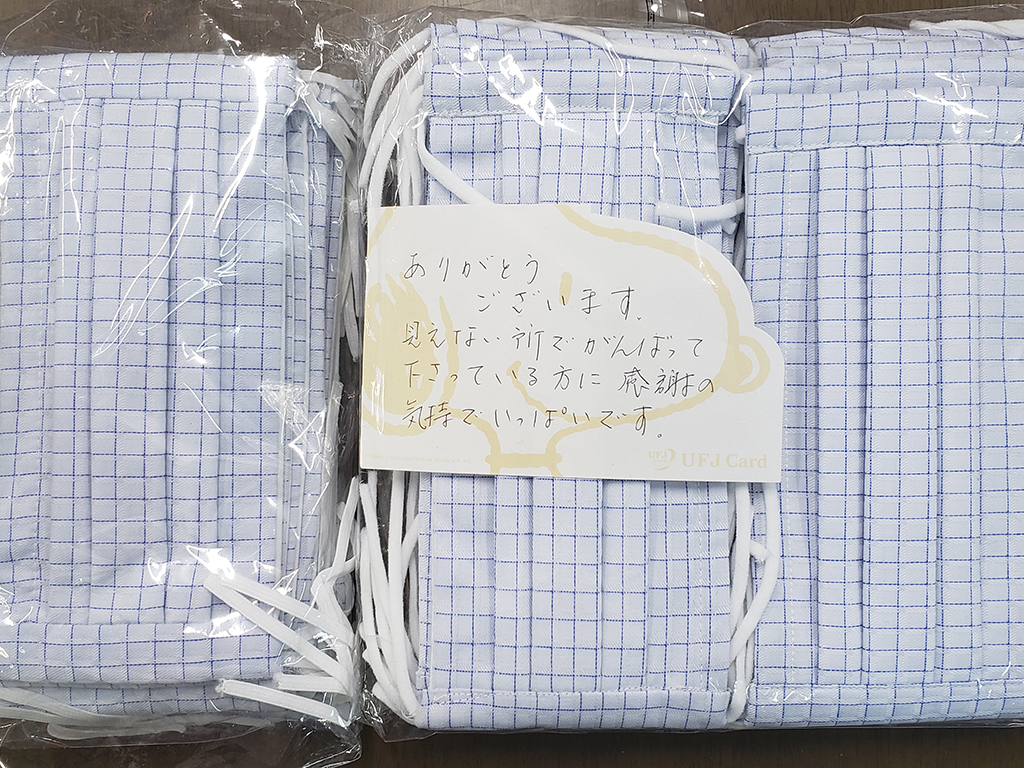 ありがとう
ございます。
見えない所でがんばって
下さっている方に感謝の
気持でいっぱいです。
UFJ UFJ Card